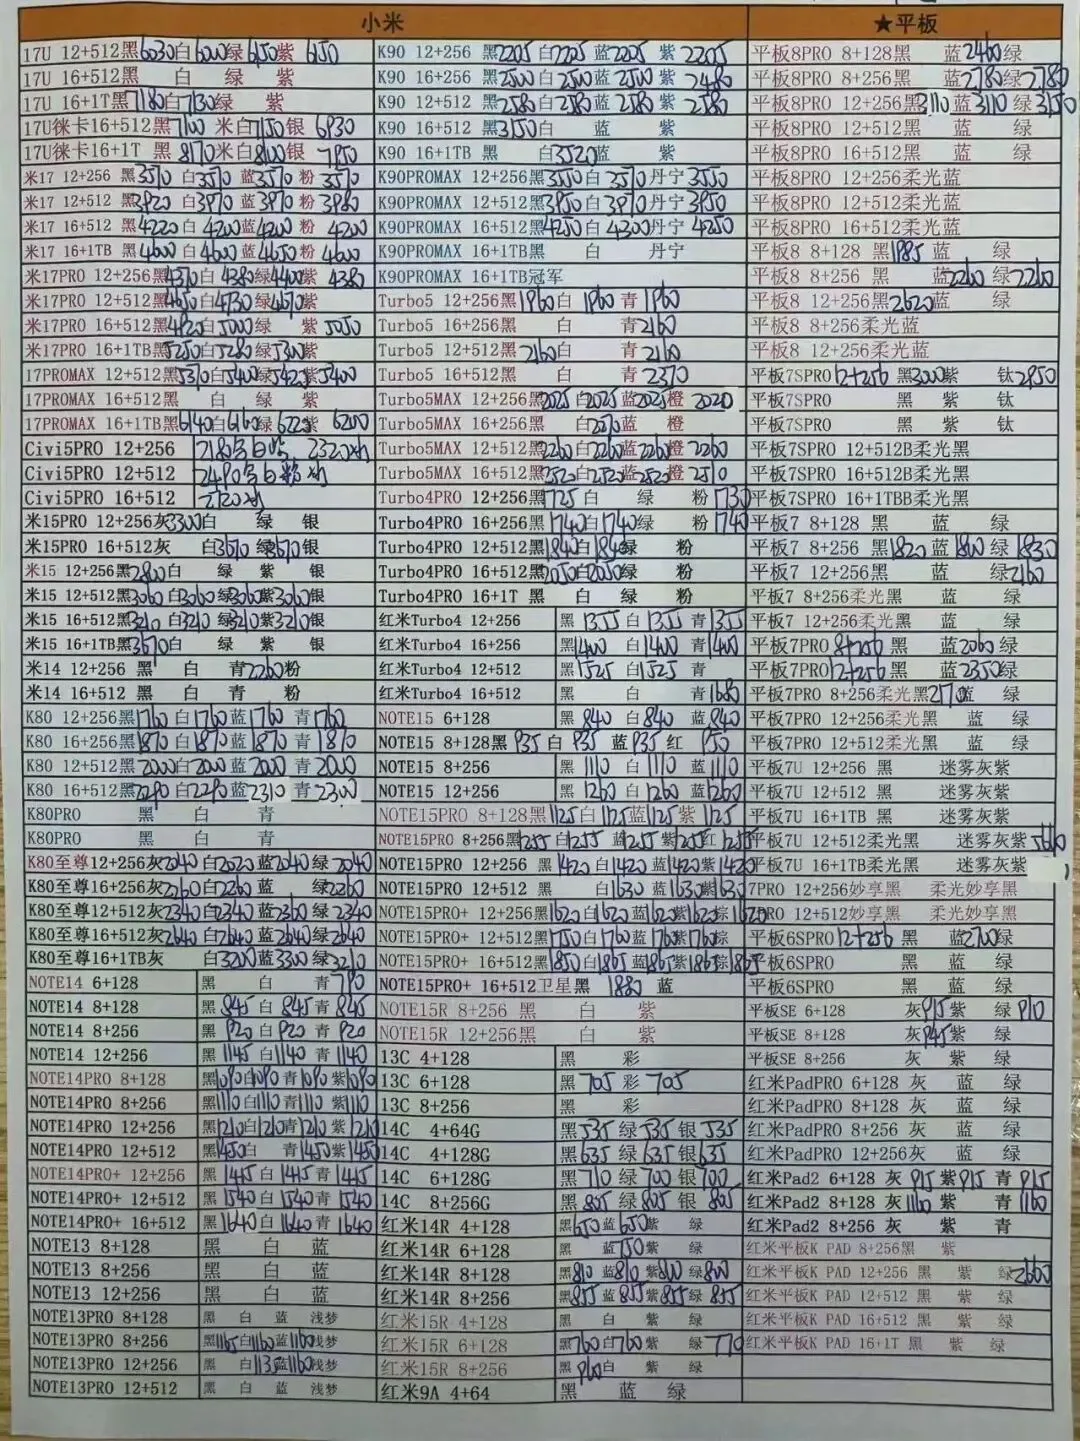 小米
17U 12+512黑6030白6000绿6150紫 6150
17U 16+512黑 白 绿 紫
17U 16+1T黑7180白7130绿 紫
17U徕卡16+512黑7100 米白7150银 6930
17U徕卡16+1T 黑8170米白8100银 7950
米17 12+256 黑3510 白3510蓝3570粉 3570
米17 12+512 黑3920 白3970蓝3970粉 3980
米17 16+512 黑4220白 4200蓝4200粉 4200
米17 16+1TB 黑4600白 4600蓝4650粉 4600
米17PRO 12+256黑4370白 4380绿4400紫 4380
米17PRO 12+512黑4650白4730绿4670紫
米17PRO 16+512黑4920白5000绿 紫5050
米17PRO 16+1TB黑5250白5280绿5300紫
17PROMAX 12+512黑5370白5400绿5420紫5400
17PROMAX 16+512黑 白 绿 紫
17PROMAX 16+1TB黑6140白6160绿6220紫 6200
Civi5PRO 12+256
Civi5PRO 12+512
Civi5PRO 16+512
米15PRO 12+256灰3300白 绿 银
米15PRO 16+512灰 白3670绿3670银
米15 12+256黑2800白 绿 紫 银
米15 12+512黑3060白3060绿3060紫3060银
米15 16+512黑3210白3210绿3210紫3210银
米15 16+1TB黑3670白 绿 紫 银
米14 12+256 黑 白 青2260粉
米14 16+512 黑 白 青 粉
K80 12+256黑1760白1760蓝1760 青1760
K80 16+256黑1870白1870蓝1870 青1870
K80 12+512黑2000白2000蓝2000 青2000
K80 16+512黑2290白2290蓝2310 青2300
K80PRO 黑 白 青
K80PRO 黑 白 青
K80至尊12+256灰2040白2020蓝2040绿2040
K80至尊16+256灰2260白2260蓝 绿2260
K80至尊12+512灰2340白2340蓝2360绿2340
K80至尊16+512灰2640白2640蓝2640绿2640
K80至尊16+1TB灰 白3200蓝3300绿3210
NOTE14 6+128 黑 白 青790
NOTE14 8+128 黑845白845青845
NOTE14 8+256 黑920白920青920
NOTE14 12+256 黑1145白1140青1140
NOTE14PRO 8+128 黑1090白1090青1090紫1090
NOTE14PRO 8+256 黑1110白1110青1110紫1110
NOTE14PRO 12+256 黑1210白1210青1210紫1210
NOTE14PRO 12+512 黑1450白 青1450紫1450
NOTE14PRO+ 12+256 黑1445白1445青1445
NOTE14PRO+ 12+512 黑1540白1540青1540
NOTE14PRO+ 16+512 黑1640白1640青1640
NOTE13 8+128 黑 白 蓝
NOTE13 8+256 黑 白 蓝
NOTE13 12+256 黑 白 蓝
NOTE13PRO 8+128 黑 白 蓝 浅梦
NOTE13PRO 8+256 黑1165白1160蓝1160浅梦
NOTE13PRO 12+256 黑 白1135蓝1160浅梦
NOTE13PRO 12+512 黑 白 蓝 浅梦
K90 12+256 黑2205白2205蓝2205紫 2205
K90 16+256 黑2500白2500蓝2500紫 2480
K90 12+512 黑2580白2580蓝2580紫 2580
K90 16+512 黑3150白 蓝 紫
K90 16+1TB 黑 白3520蓝 紫
K90PROMAX 12+256黑3550白3510丹宁3550
K90PROMAX 12+512黑3950白3970丹宁3950
K90PROMAX 16+512黑4250白4300丹宁4250
K90PROMAX 16+1TB黑 白 丹宁
K90PROMAX 16+1TB冠军
Turbo5 12+256黑1960白 1960青1960
Turbo5 16+256黑 白 青2160
Turbo5 12+512黑2160白 青2160
Turbo5 16+512黑 白 青2370
Turbo5MAX 12+256黑2025白2025蓝2025橙 2020
Turbo5MAX 16+256黑 白2270蓝 橙
Turbo5MAX 12+512黑2260白2260蓝2260橙2260
Turbo5MAX 16+512黑2520白2520蓝2520橙2510
Turbo4PRO 12+256黑1725白 绿 粉1730
Turbo4PRO 16+256黑1740白1740绿 粉1740
Turbo4PRO 12+512黑1840白1840绿 粉
Turbo4PRO 16+512黑2050白2050绿 粉
Turbo4PRO 16+1T 黑 白 绿 粉
红米Turbo4 12+256 黑1355白1355青1355
红米Turbo4 16+256 黑1400白1400青1400
红米Turbo4 12+512 黑1525白1525青
红米Turbo4 16+512 黑 白 青1680
NOTE15 6+128 黑840白840蓝840
NOTE15 8+128黑935白935蓝935红 950
NOTE15 8+256 黑1110白1110蓝1110
NOTE15 12+256 黑1260白1260蓝1260
NOTE15PRO 8+128黑1125白1125蓝1125紫1125
NOTE15PRO 8+256黑1255白1255蓝1255紫1255红1255
NOTE15PRO 12+256 黑1420白1420蓝1420紫1420
NOTE15PRO 12+512 黑 白1630蓝1630紫1630
NOTE15PRO+ 12+256黑1620白1620蓝1620紫 棕1620
NOTE15PRO+ 12+512黑1750白1760蓝1760紫1760棕
NOTE15PRO+ 16+512黑1850白1865蓝1865紫1865棕1865
NOTE15PRO+ 16+512卫星黑 1880 蓝
NOTE15R 8+256 黑 白 紫
NOTE15R 12+256黑 白 紫
13C 4+128 黑 彩
13C 6+128 黑705彩705
13C 8+256 黑 彩
14C 4+64G 黑535绿535银535
14C 4+128G 黑635绿635银635
14C 6+128G 黑710绿700银700
14C 8+256G 黑805绿805银805
红米14R 4+128 黑650蓝650紫 绿
红米14R 6+128 黑 蓝750紫 绿
红米14R 8+128 黑810蓝810紫800绿800
红米14R 8+256 黑855蓝855紫855绿855
红米15R 4+128 黑 白 紫 绿
红米15R 6+128 黑760白760紫 绿770
红米15R 8+256 黑910白 紫 绿
红米9A 4+64 黑 蓝 绿
★平板
平板8PRO 8+128黑 蓝2460绿
平板8PRO 8+256黑 蓝2780绿2780
平板8PRO 12+256黑3110蓝3110绿3150
平板8PRO 12+512黑 蓝 绿
平板8PRO 16+512黑 蓝 绿
平板8PRO 12+256柔光蓝
平板8PRO 12+512柔光蓝
平板8PRO 16+512柔光蓝
平板8 8+128 黑1985蓝 绿
平板8 8+256 黑 蓝2260绿2260
平板8 12+256黑2620蓝 绿
平板8 8+256柔光蓝
平板8 12+256柔光蓝
平板7SPRO 12+256 黑3000紫 钛2950
平板7SPRO 黑 紫 钛
平板7SPRO 12+512B柔光黑
平板7SPRO 16+512B柔光黑
平板7SPRO 16+1TBB柔光黑
平板7 8+128 黑 蓝 绿
平板7 8+256 黑1820蓝1800绿1830
平板7 12+256黑 蓝 绿2160
平板7 8+256柔光黑 蓝 绿
平板7 12+256柔光黑 蓝 绿
平板7PRO 8+256 黑 蓝2060绿
平板7PRO12+256 黑 蓝2350绿
平板7PRO 8+256柔光黑2170蓝 绿
平板7PRO 12+256柔光黑 蓝 绿
平板7PRO 12+512柔光黑 蓝 绿
平板7U 12+256 黑 迷雾灰紫
平板7U 12+512 黑 迷雾灰紫
平板7U 16+1TB 黑 迷雾灰紫
平板7U 12+512柔光黑 迷雾灰紫
平板7U 16+1TB柔光黑 迷雾灰紫
7PRO 12+256妙享黑 柔光妙享黑
7PRO 12+512妙享黑 柔光妙享黑
平板6SPRO 12+256 黑 蓝2700绿
平板6SPRO 黑 蓝 绿
平板6SPRO 黑 蓝 绿
平板SE 6+128 灰915紫 绿910
平板SE 8+128 灰945紫 绿
平板SE 8+256 灰 紫 绿
红米PadPRO 6+128 灰 蓝 绿
红米PadPRO 8+128灰 蓝 绿
红米PadPRO 8+256灰 蓝 绿
红米PadPRO 12+256灰 蓝 绿
红米Pad2 6+128 灰 915紫915青 915
红米Pad2 8+128 灰1160紫 青1160
红米Pad2 8+256 灰 紫 青
红米平板K PAD 8+256黑 紫
红米平板K PAD 12+256 黑 紫 绿2660
红米平板K PAD 12+512 黑 紫 绿
红米平板K PAD 16+512 黑 紫 绿
红米平板K PAD 16+1T 黑 紫 绿